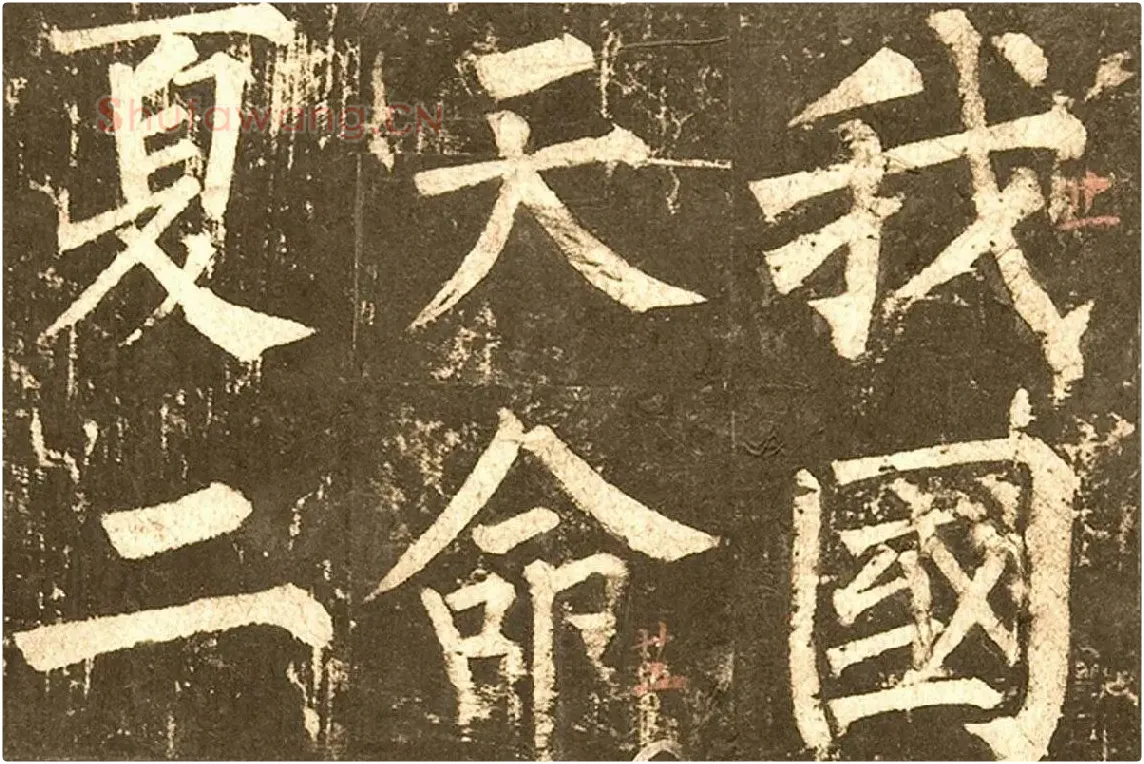 我國
天命
夏二
Shufawang.CN